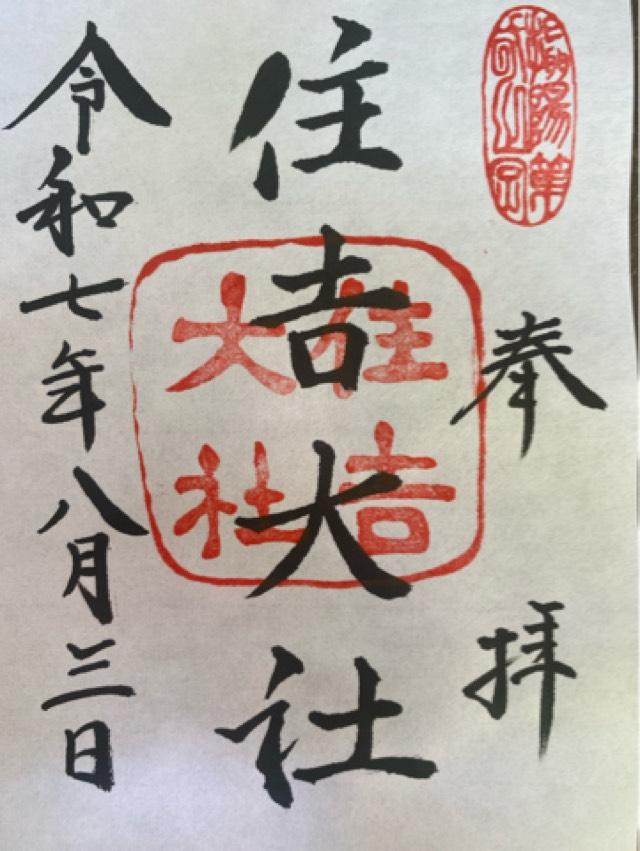 奉拝
住吉大社
住吉
大社
令和七年八月三日